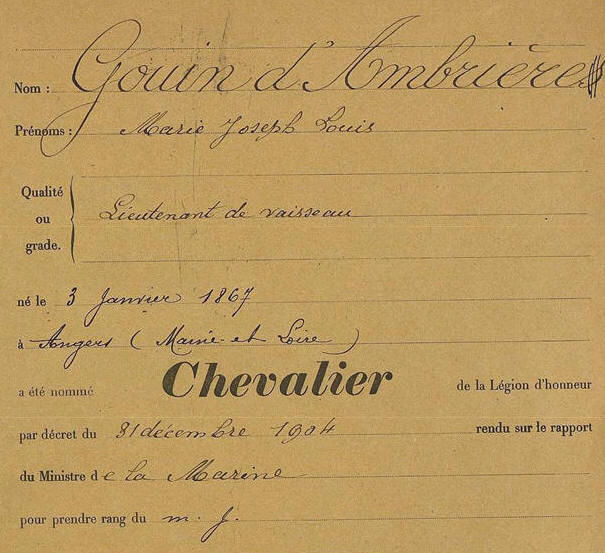 Nom : Gouin d'Ambrières
Prénoms : Marie Joseph Louis
Qualité
ou
grade.
Lieutenant de vaisseau
né le 3 Janvier 1867
à Angers (Maine-et-Loire)
a été nommé Chevalier de la Légion d'honneur
par décret du 31 décembre 1904 rendu sur le rapport
du Ministre de la Marine
pour prendre rang du m. j.